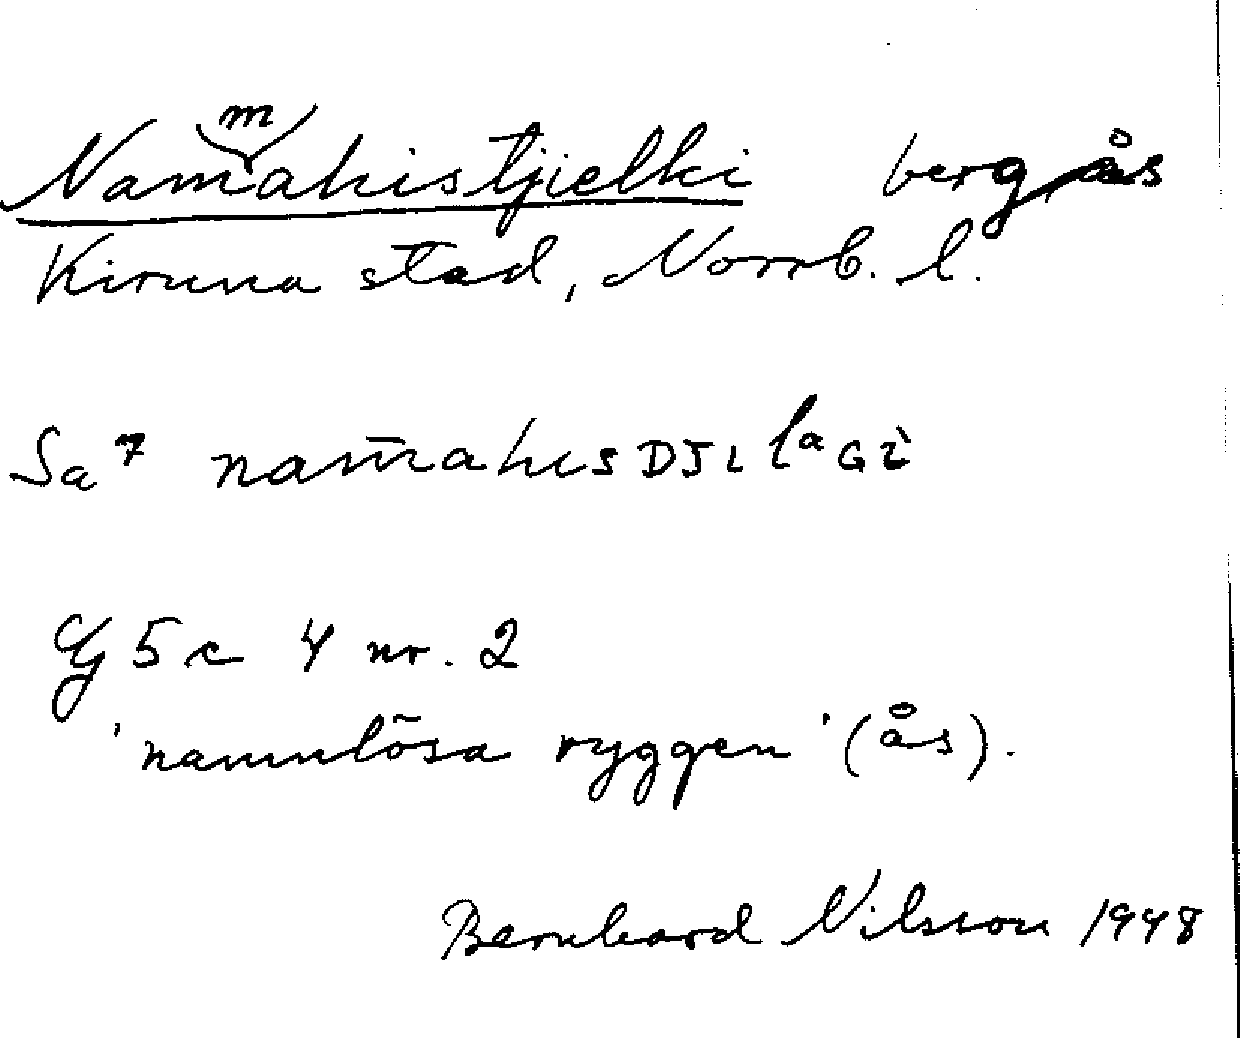 Nammahistjielki bergås
Kiruna stad, Norrb. l.
Sa 7 nam̄ahɩsDJɩlˡᵃGi
G 5c 4 nr. 2
'namnlösa ryggen' (ås).
Bernhard Nilsson 1948